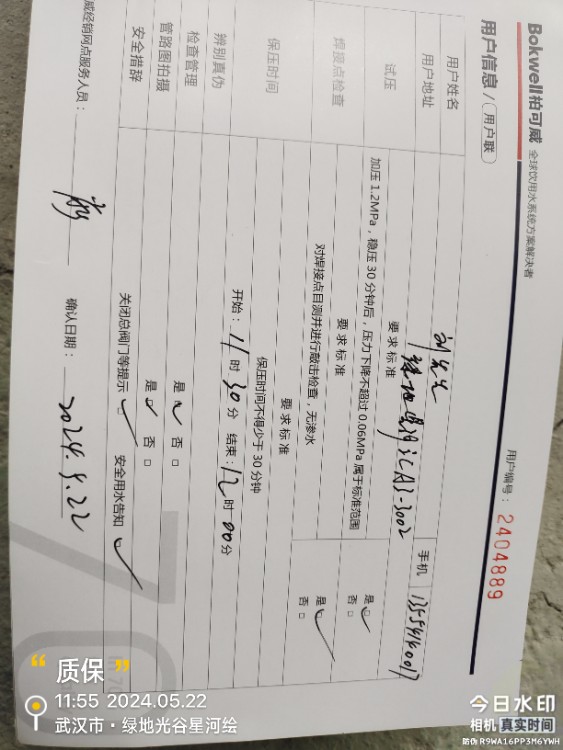 Bokwell柏可威 全球饮用水系统方案解决者
用户信息/(用户联) 用户编号：2404889
用户姓名 刘先生 手机
用户地址
试压 要求标准
加压1.2MPa，稳压30分钟后，压力下降不超过0.06MPa属于标准范围 是 ✓ 否 □
焊接点检查 要求标准
对焊接点目测并进行敲击检查，无渗水 是 ✓ 否 □
保压时间 要求标准
保压时间不得少于30分钟
开始：11时30分 结束：12时00分
辨别真伪
检查管理 是 ✓ 否 □
管路图拍摄 是 ✓ 否 □
安全措辞 关闭总阀门等提示 ✓ 安全用水告知 ✓
威经销网点服务人员： 确认日期：2024.5.22
“ 质保 ”
11:55 2024.05.22
武汉市·绿地光谷星河绘
今日水印
相机 真实时间
防伪 R9WA16PP3M6YWH